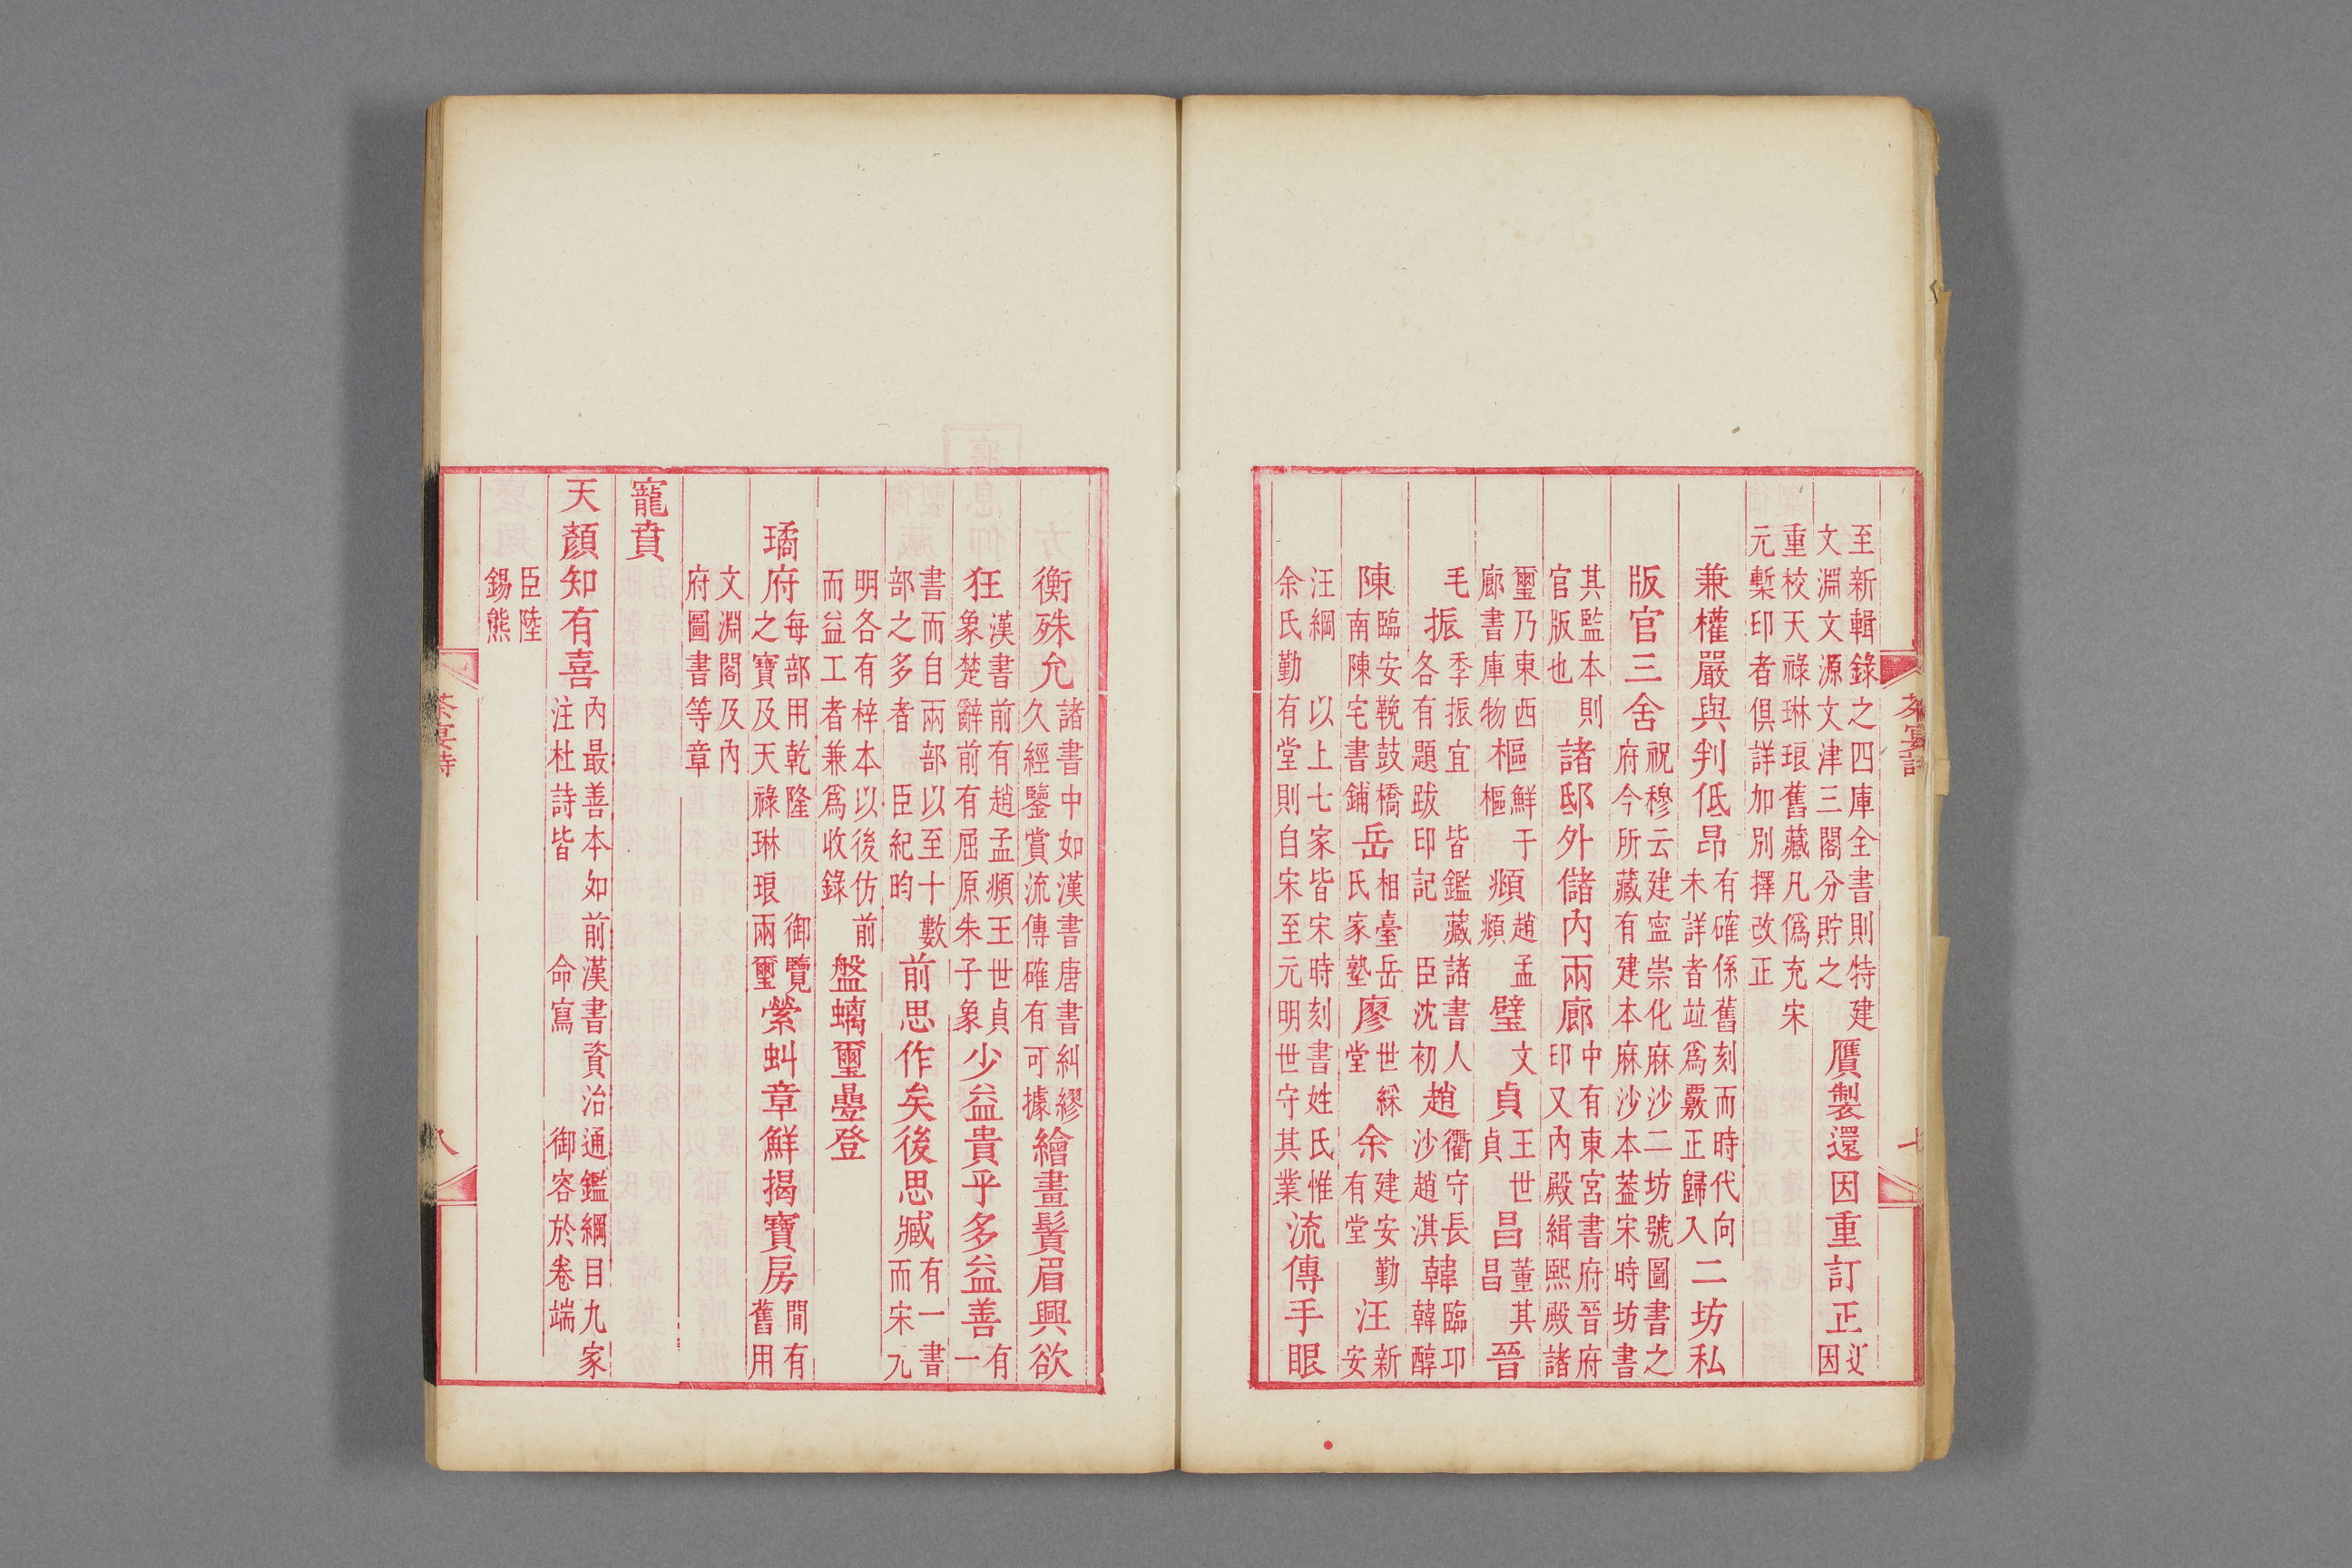 至新輯錄之四庫全書則特建
文淵文源文津三閣分貯之
贋製還因重訂正
近
因
重校天祿琳琅舊藏凡偽充宋
元槧印者俱詳加別擇改正
兼權嚴與判低昂
有確係舊刻而時代向
未詳者竝為覈正歸入
二坊私
版官三舍
祝穆云建寧崇化麻沙二坊號圖書之
府今所藏有建本麻沙本葢宋時坊書
其監本則
官版也
諸邸外儲內兩廊
中有東宮書府晉府
印又內殿緝熙殿諸
璽乃東西
廊書庫物
樞
鮮于
樞
頫
趙孟
頫
璧
文
貞
王世
貞
昌
董其
昌
晉
毛
振
季振宜
各有題跋印記
皆鑑藏諸書人
臣沈初
趙
衢守長
沙趙淇
韓
臨邛
韓醇
陳
臨安鞔鼓橋
南陳宅書鋪
岳
相臺岳
氏家塾
廖
世綵
堂
余
建安勤
有堂
汪
新
安
汪綱 以上七家皆宋時刻書姓氏惟
余氏勤有堂則自宋至元明世守其業
流傳手眼
茶宴詩
七
衡殊允
諸書中如漢書唐書糾繆
久經鑒賞流傳確有可據
繪畫鬢眉興欲
狂
漢書前有趙孟頫王世貞
象楚辭前有屈原朱子象
少益貴乎多益善
有
一
書而自兩部以至十數
部之多者 臣紀昀
前思作矣後思臧
有一書
而宋元
明各有梓本以後仿前
而益工者兼為收錄
盤螭璽曇登
璚府
每部用乾隆御覽
之寶及天祿琳琅兩璽
縈虯章鮮揭寶房
間有
舊用
文淵閣及內
府圖書等章
寵賁
天顏知有喜
內最善本如前漢書資治通鑑綱目九家
注杜詩皆 命寫 御容於卷端
臣陸
錫熊
茶宴詩
八